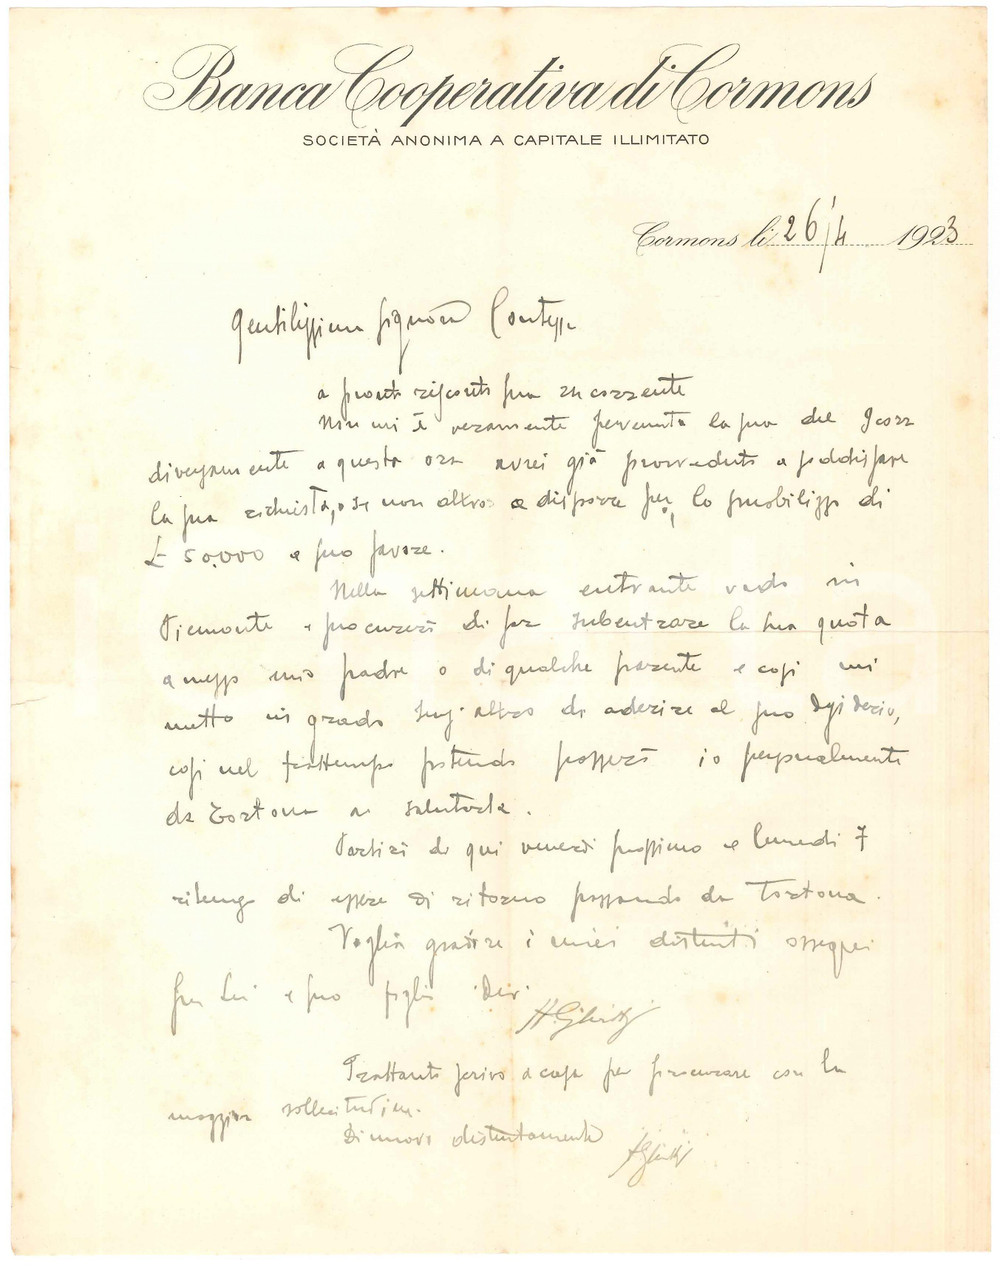 Banca Cooperativa di Cormons
SOCIETÀ ANONIMA A CAPITALE ILLIMITATO
Cormons li 26/4 1923
Gentilissima Signora Contessa
a pronto riscontro sua corrente
Non mi è veramente pervenuta la sua del 9 corr
diversamente a questa ora avrei già provveduto a soddisfare
la sua richiesta, se non altro a disporre per lo smobilizzo di
£ 50.000 a suo favore.
Nella settimana entrante vado in
Piemonte e procurerò di far subentrare la sua quota
a mezzo mio padre o di qualche parente e così mi
metto in grado senz'altro di aderire al suo desiderio,
così nel frattempo potendo passerò io personalmente
da Tortona a salutarla.
Partirò da qui venerdì prossimo e lunedì 7
ritengo di essere di ritorno passando da Tortona.
Voglia gradire i miei distinti ossequi
per Lei e suo figlio
Frattanto scrivo a casa per procurare con la
maggior sollecitudine.
Di nuovo distintamente